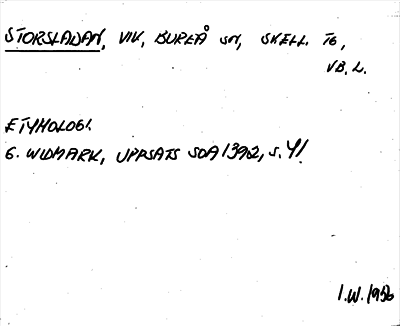 STORSLADAN, VIK, BUREÅ SN, SKELL. TG,
VB. L.
ETYMOLOGI.
G. WIDMARK, UPPSATS SOA 1392, S. 41.
I.W. 1956